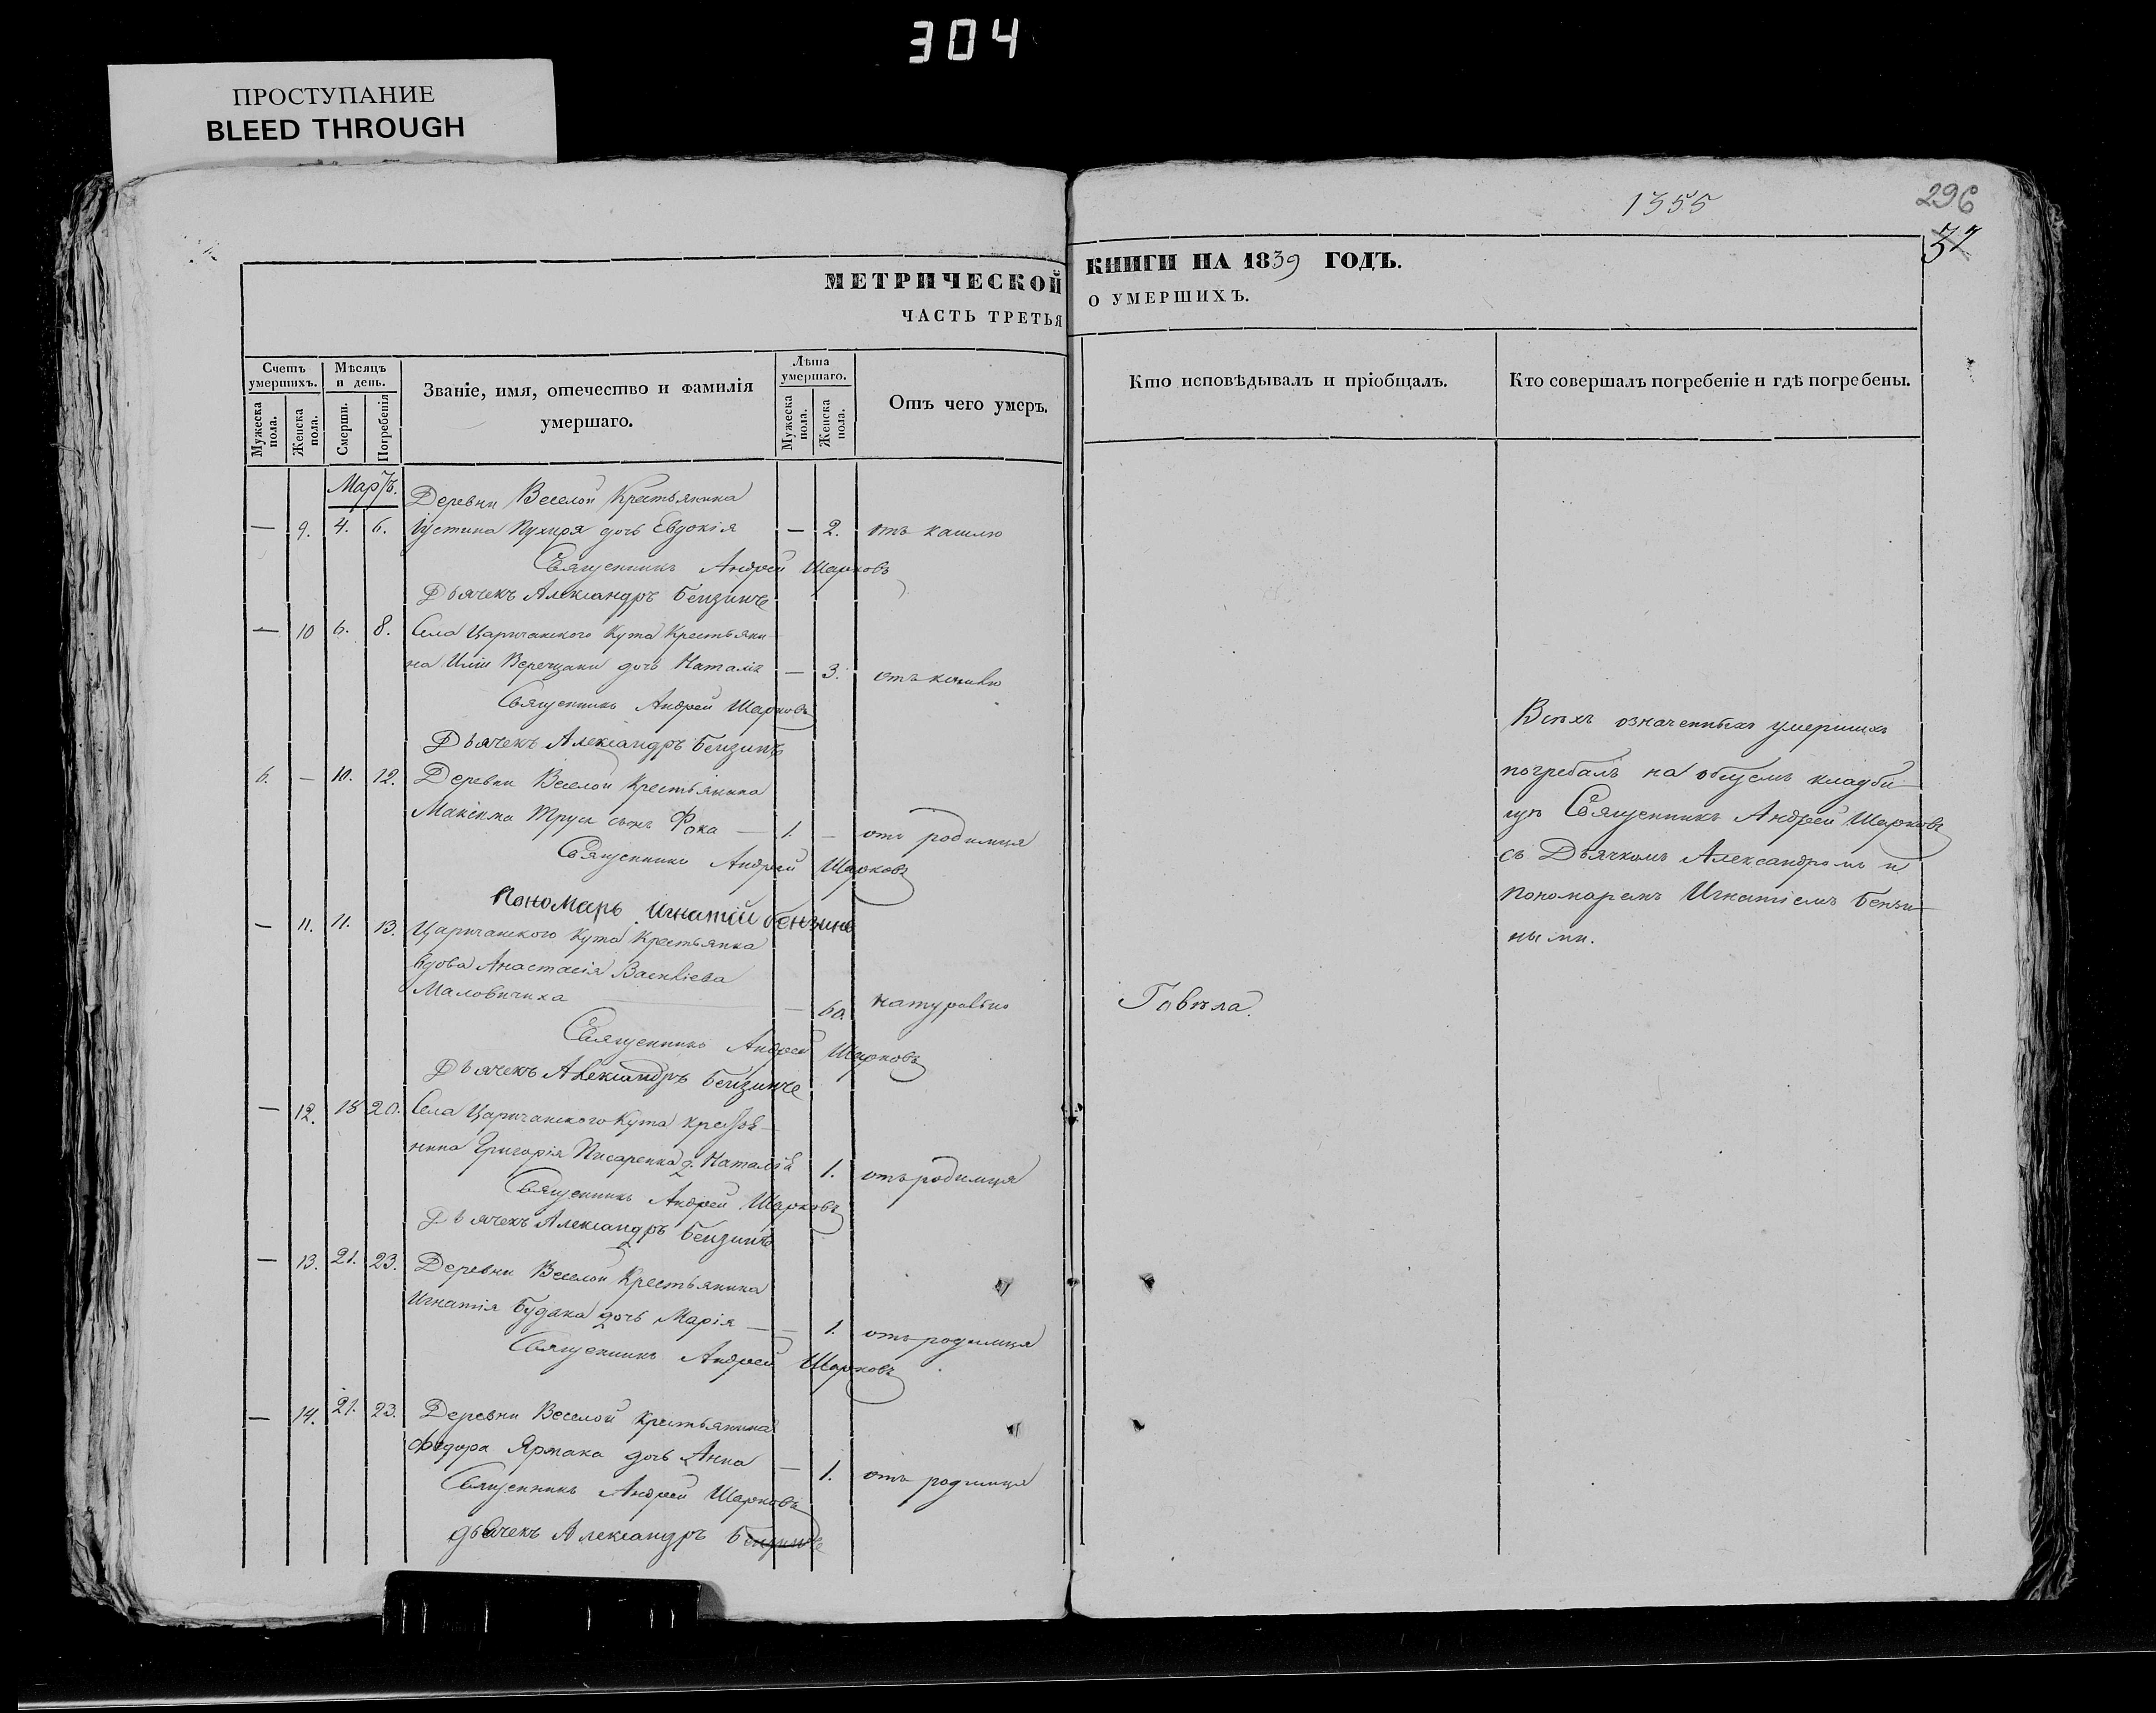 304
ПРОСТУПАНИЕ
BLEED THROUGH
1355
296
37
МЕТРИЧЕСКОЙ КНИГИ НА 1839 ГОДЪ.
ЧАСТЬ ТРЕТЬЯ О УМЕРШИХЪ.
Счетъ умершихъ.
Мужеска пола.
Женска пола.
Мѣсяцъ и день.
Смерти.
Погребенія
Званіе, имя, отечество и фамилія
умершаго.
Лѣта умершаго.
Мужеска пола.
Женска пола.
Отъ чего умеръ.
Кто исповѣдывалъ и пріобщалъ.
Кто совершалъ погребеніе и гдѣ погребены.
Мартъ.
Деревни Веселой Крестьянина
— 9. 4. 6. Іустина Пухиря дочь Евдокія — 2. отъ кашлю
Священникъ Андрей Шарковъ
Дьячекъ Александръ Бензинъ
— 10 6. 8. Села Царичанского Кута Крестьяни-
на Иліи Верещаки дочь Наталія — 3. отъ кашлю
Священникъ Андрей Шарковъ
Дьячекъ Александръ Бензинъ
6. — 10. 12. Деревни Веселой Крестьянина
Максима Труса сынъ Фока — 1. — отъ родимца
Священникъ Андрей Шарковъ
Пономарь Игнатій Бензинъ
— 11. 11. 13. Царичанского Кута Крестьянка
вдова Анастасія Василіева
Маловичиха — 60. натурально
Говѣла.
Священникъ Андрей Шарковъ
Дьячекъ Александръ Бензинъ
— 12. 18 20. Села Царичанского Кута Крестья-
нина Григорія Писаренка д. Наталія 1. отъ родимца
Священникъ Андрей Шарковъ
Дьячекъ Александръ Бензинъ
— 13. 21. 23. Деревни Веселой Крестьянина
Игнатія Будака дочь Марія — — 1. отъ родимца
Священникъ Андрей Шарковъ
— 14. 21. 23. Деревни Веселой Крестьянина
Федора Ярмака дочь Анна — 1. отъ родимца
Священникъ Андрей Шарковъ
Дьячекъ Александръ Бензинъ
Всѣхъ означенныхъ умершихъ
погребалъ на общемъ кладби-
щѣ Священникъ Андрей Шарковъ
съ Дьячкомъ Александромъ и
пономаремъ Игнатіемъ Бензи-
ными.